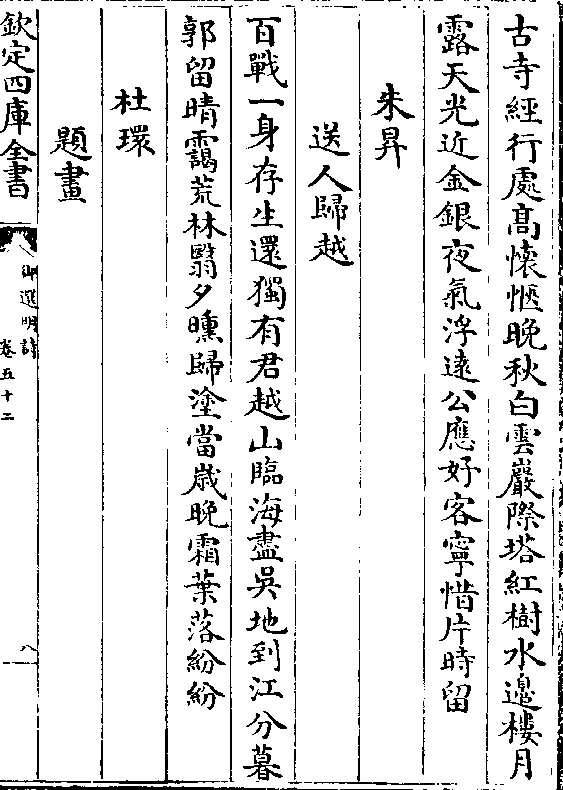 古寺經行處高懷愜晚秋白雲巖際塔紅樹水邊樓月
露天光近金銀夜氣浮遠公應好客寧惜片時留
朱昇
送人歸越
百戰一身存生還獨有君越山臨海盡吳地到江分暮
郭留晴靄荒林翳夕曛歸塗當歲晚霜葉落紛紛
杜環
題畫
欽定四庫全書
御選明詩
卷五十二
八